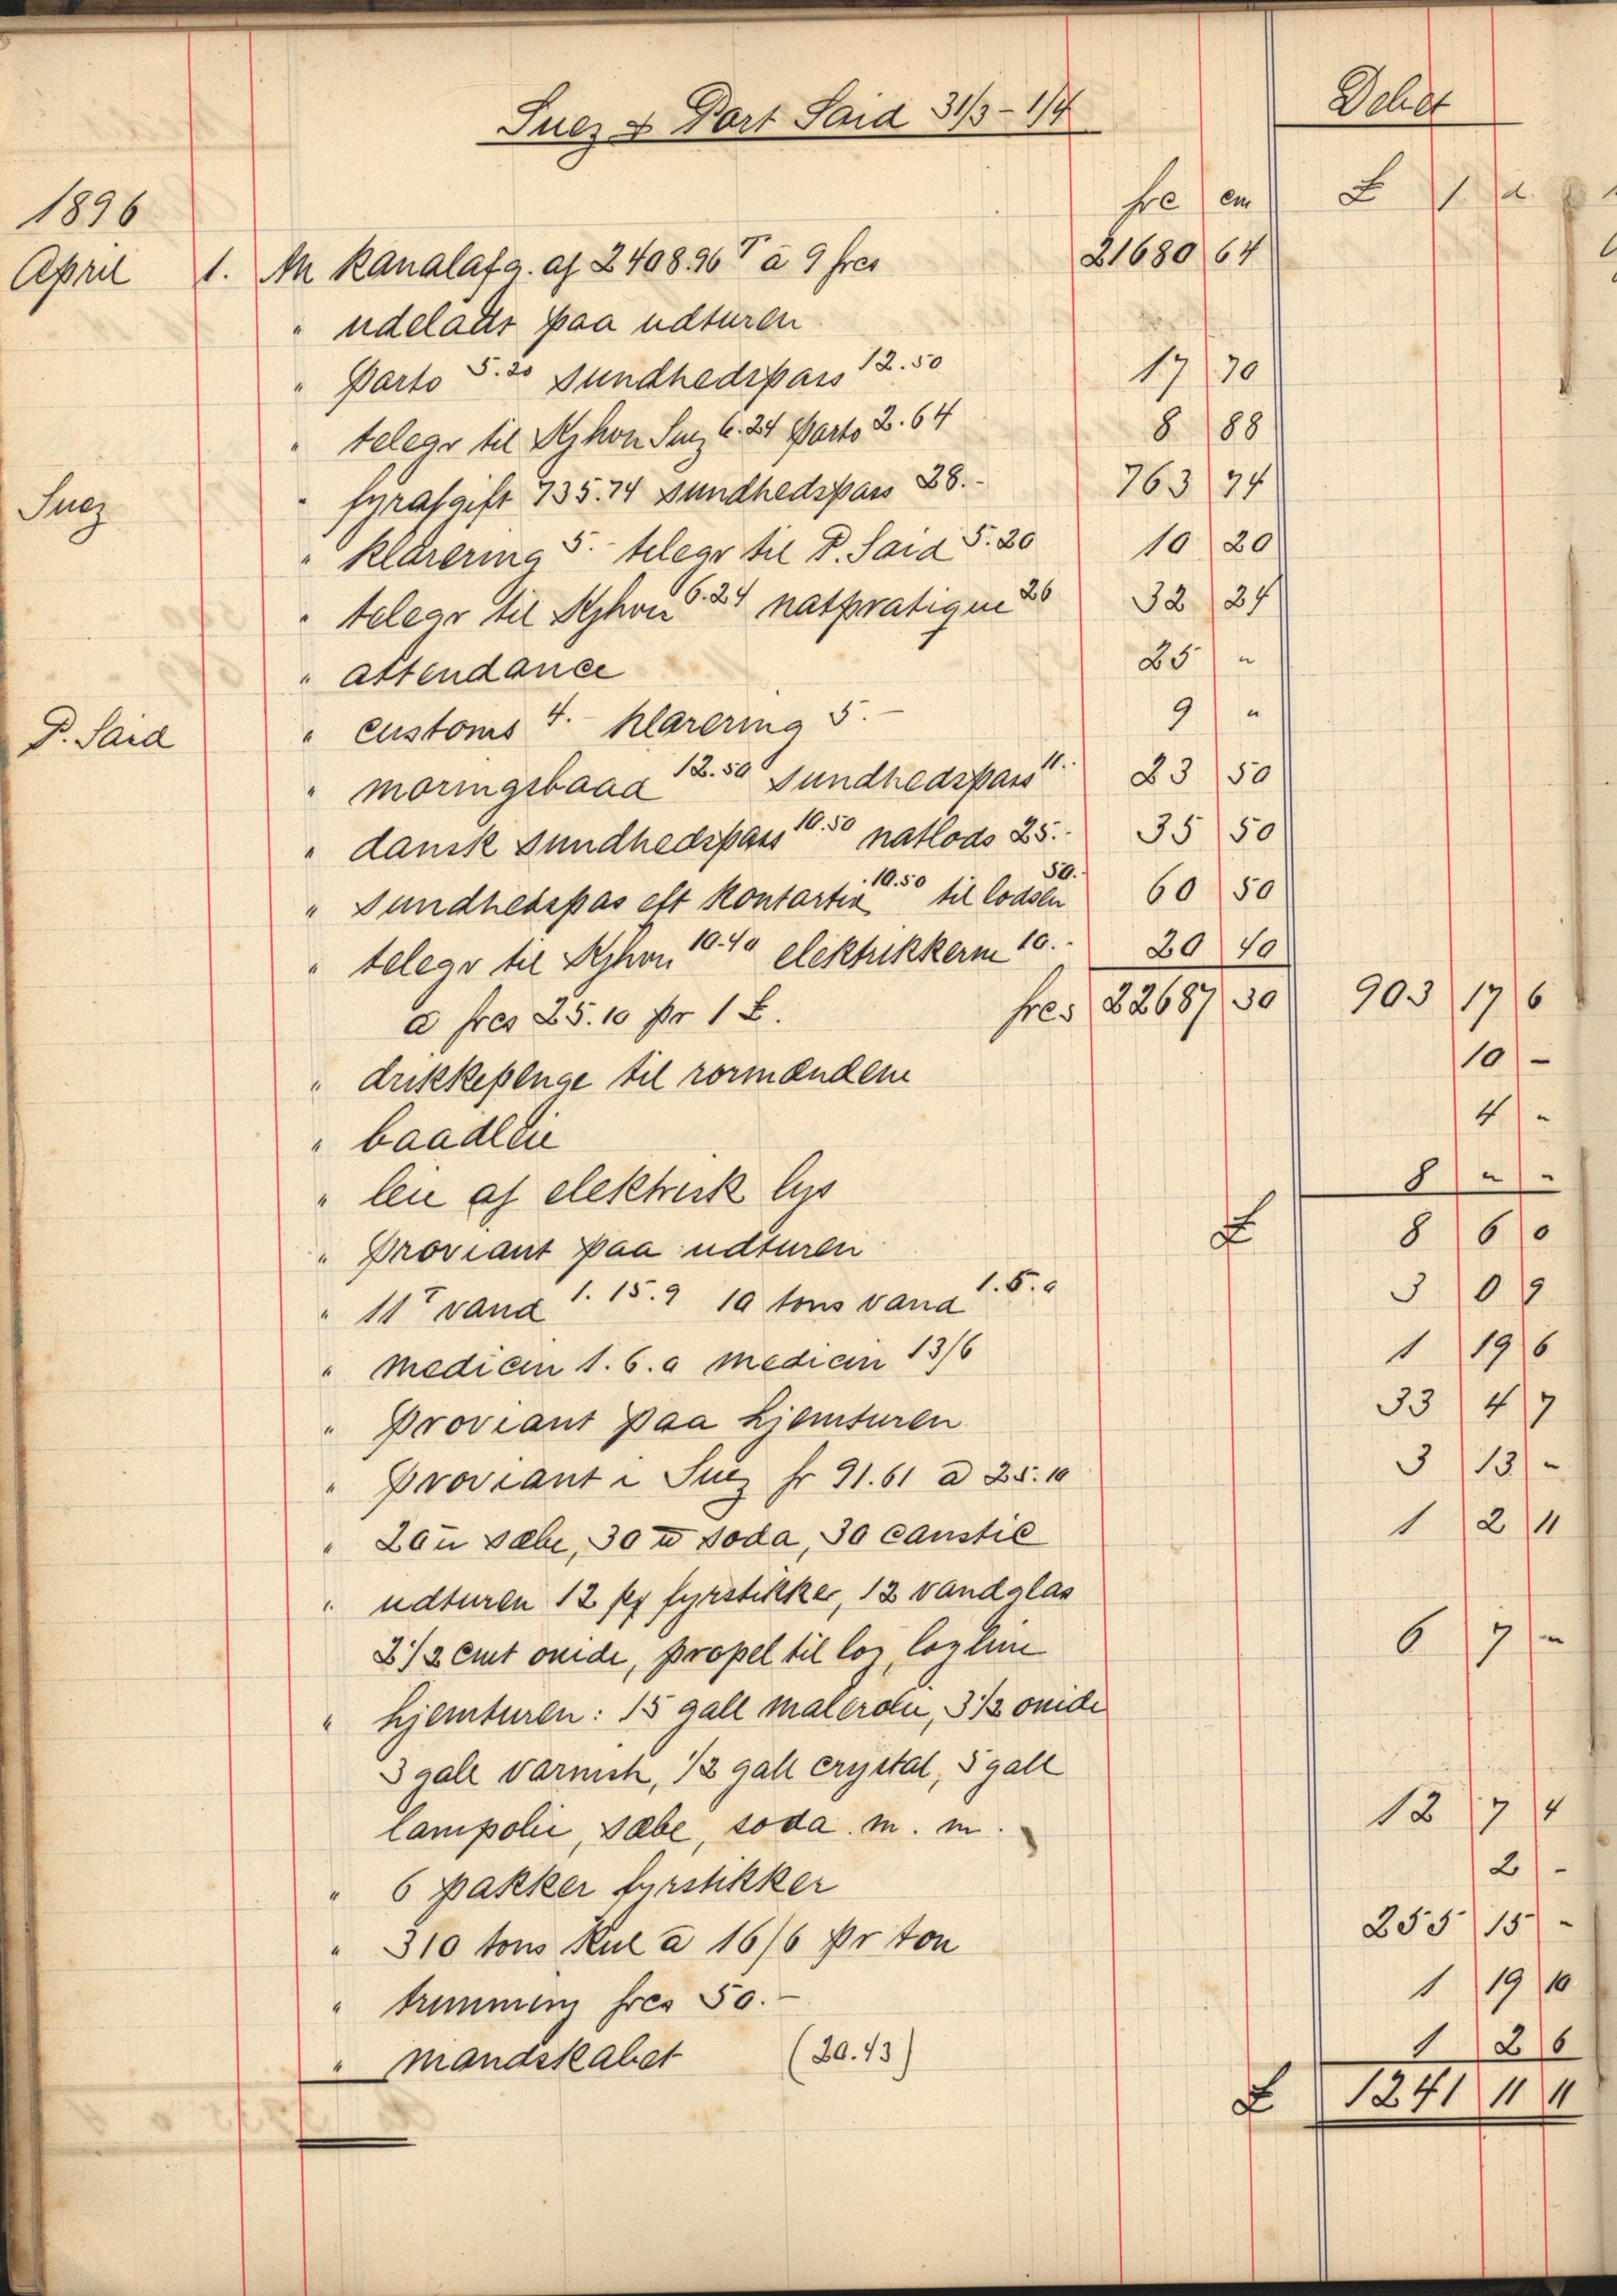 Suez & Port Said 31/3 - 1/4 Debet
1896 frc cm £ s d
April 1. An kanalafg. af 2408.96 T a 9 frcs 21680 64
" udelads paa udturen
" Porto 5.20 sundhedspass 12.50 17 70
" telegr til Kjhvn Suez 6.24 Porto 2.64 8 88
Suez " fyrafgift 735.74 sundhedspass 28.- 763 74
" klarering 5.- telegr til P. Said 5.20 10 20
" telegr til Kjhvn 6.24 natpratique 26 32 24
" attendance 25 "
P. Said " customs 4.- klarering 5.- 9 "
" moringsbaad 12.50 Sundhedspass 11.- 23 50
" dansk sundhedspass 10.50 natlods 25.- 35 50
" Sundhedspas eft 10.50 til lodsen 50.- 60 50
" telegr til Kjhvn 10.40 elektrikkerne 10.- 20 40
a frcs 25.10 pr 1 £. frcs 22687 30 903 17 6
" drikkepenge til rormændene 10 -
" baadleie 4 -
" leie af elektrisk lys 8 " -
" Proviant paa udturen £ 8 6 0
" 11 T vand 1.15.9 10 tons vand 1.5.0 3 0 9
" medicin 1.6.0 medicin 13/6 1 19 6
" Proviant paa hjemturen 33 4 7
" Proviant i Suez fr 91.61 a 25.10 3 13 -
" sæbe, 30 ℔ soda, 30 caustic 1 2 11
" udturen 12 fyrstikker, 12 vandglas
2 1/2 cwt oxide, propel til log, logline 6 7 -
" hjemturen: 15 gall malerolie, 3 1/2 oxide
3 gall varnish, 1/2 gall crystal, 5 gall
lampolie, sæbe, soda m. m. 12 7 4
" 6 pakker fyrstikker 2 -
" 310 tons kul a 16/6 pr ton 255 15 -
" trimming frcs 50.- 1 19 10
" mandskabet (20.43) 1 2 6
£ 1241 11 11